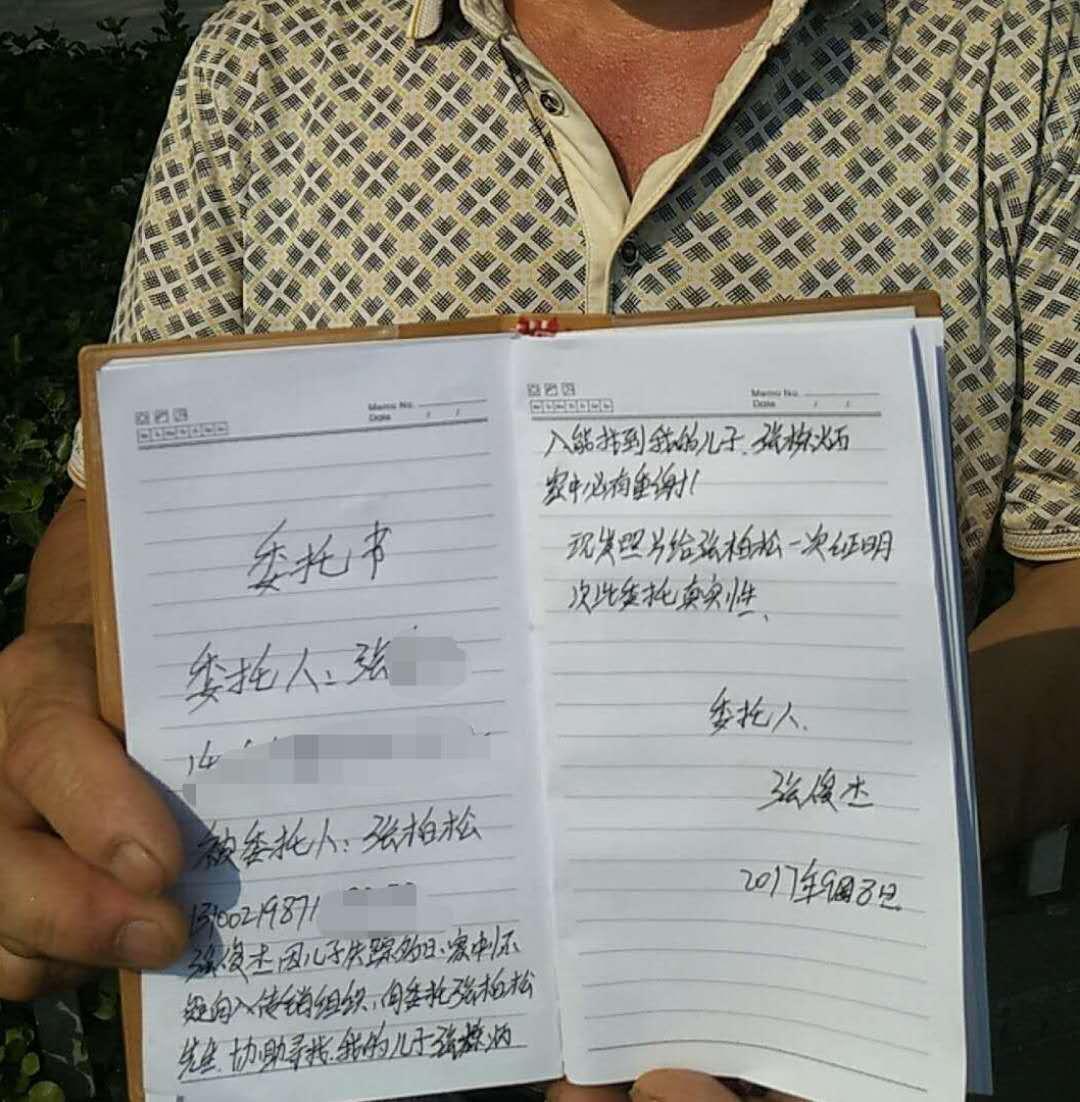 Memo No.
Date / /
委托书
委托人:张
被委托人:张柏松
13100219871
张俊杰因儿子失踪多日、家中怀
疑向入传销组织,向委托张柏松
先生,协助寻找,我的儿子张栋炳
Memo No.
Date / /
入能找到我的儿子、张栋炳
家中必有重谢!
现发照片给张柏松一次证明
次此委托真实性、
委托人.
张俊杰
2017年9月3日